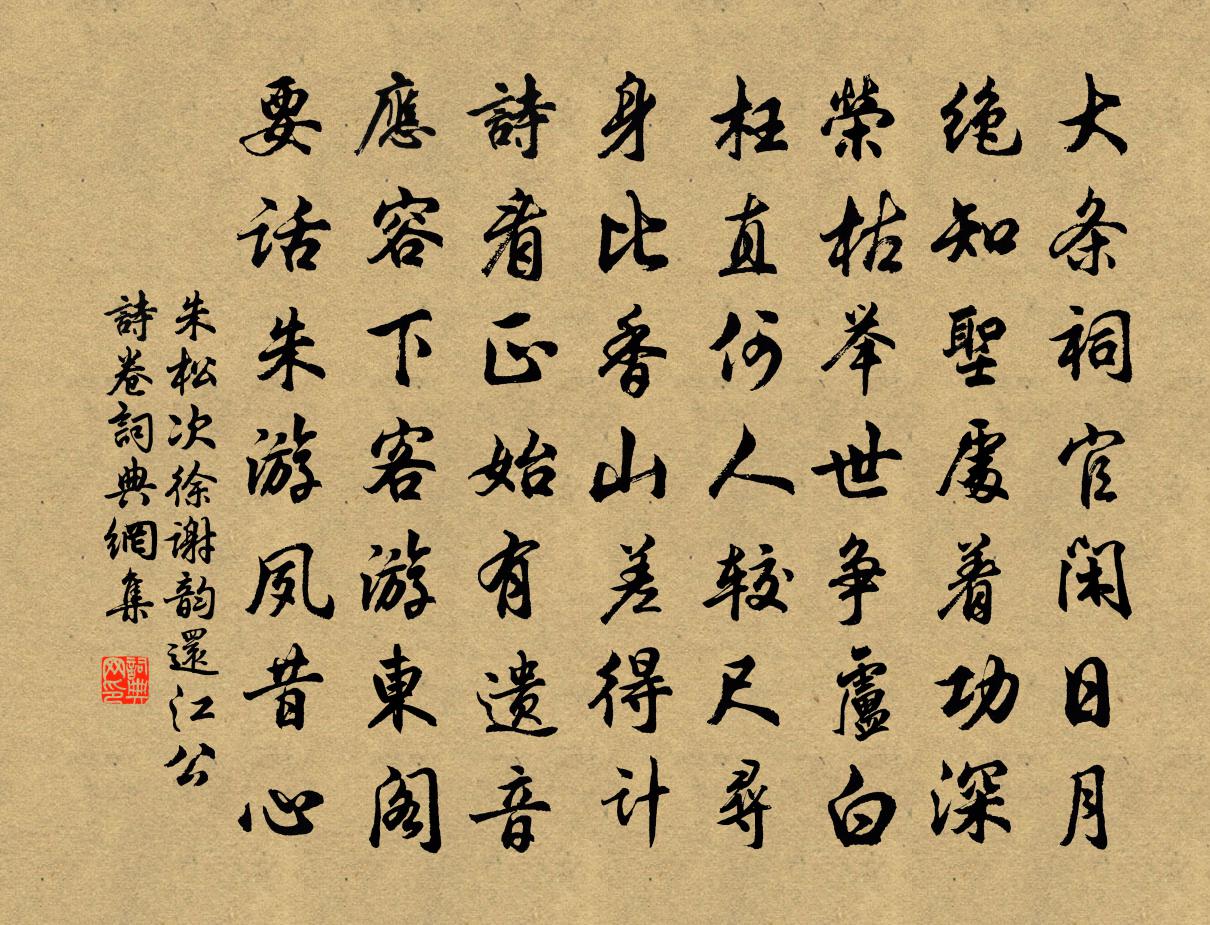 大条祠官闲日月
绝知聖處着功深
榮枯举世争盧白
枉直何人较尺尋
身比香山差得计
詩看正始有遗音
應容下客游東阁
要话朱游夙昔心
朱松次徐谢韵還江公
詩卷詞典網集
詞典网印